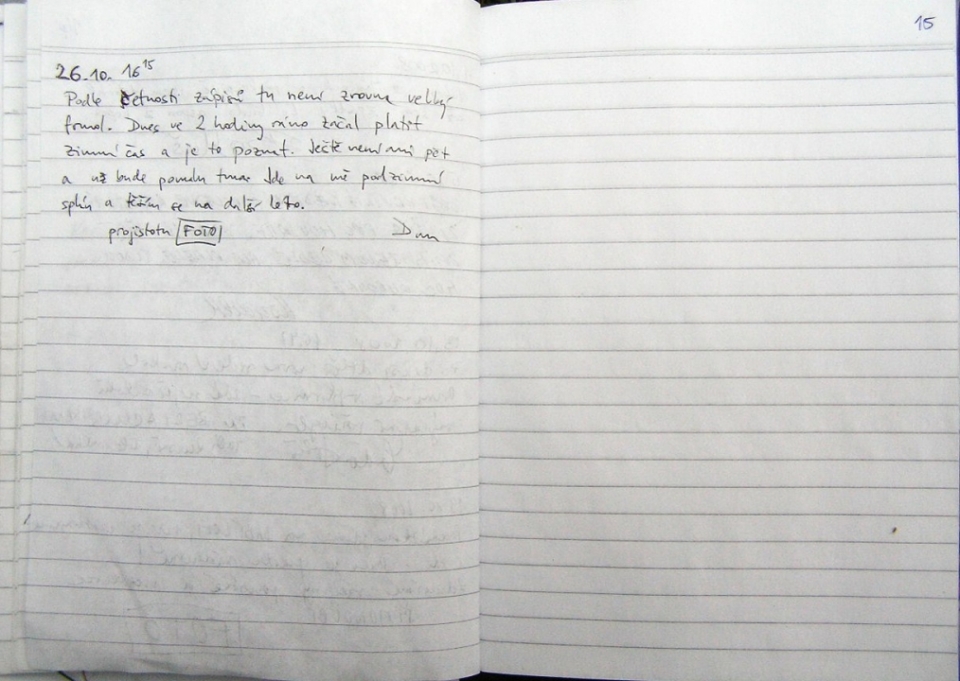 15
26.10. 16¹⁵
Podle četnosti zápisů tu není zrovna velký
frmol. Dnes ve 2 hodiny ráno začal platit
zimní čas a je to poznat. Ještě není ani pět
a už bude pomalu tma. Jde na mě podzimní
splín a těším se na další léto.
projistotu FOTO Dan